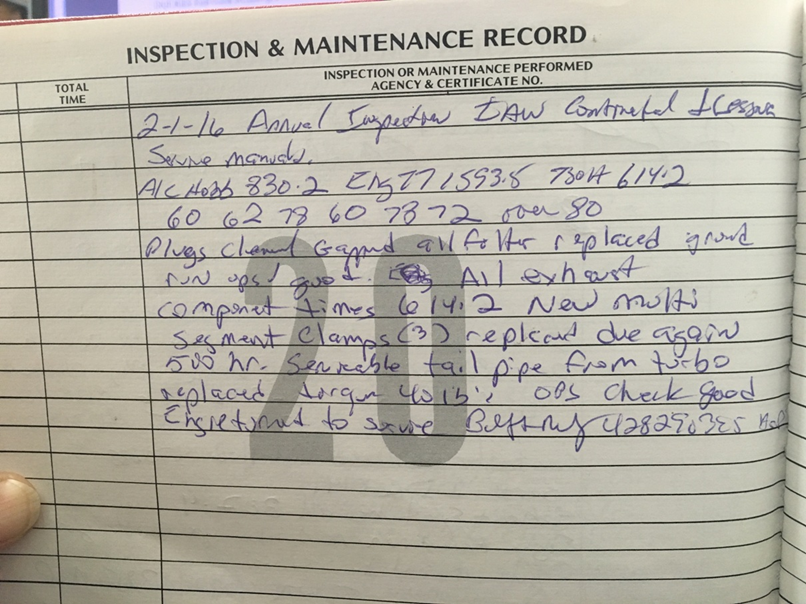 INSPECTION & MAINTENANCE RECORD
TOTAL
TIME
INSPECTION OR MAINTENANCE PERFORMED
AGENCY & CERTIFICATE NO.
2-1-16 Annual Inspection IAW Continetal & Cessna
Service manuals.
A/C Hobb 830.2 Eng TT 1593.5 TSOH 614.2
60 62 78 60 78 72 over 80
Plugs Cleaned Gapped all filter replaced ground
run ops/ good. All exhaust
componet times 614.2 New multi
Segment Clamps (3) replaced due again
500 hr. Serviceable tail pipe from turbo
replaced torque 40 lb's OPS Check good
Eng returned to service
20